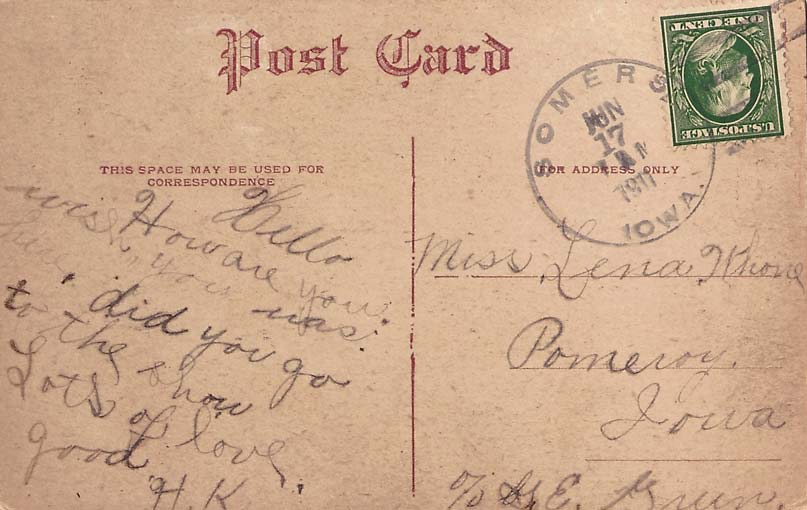 Post Card
THIS SPACE MAY BE USED FOR
CORRESPONDENCE
Hello
How are you.
wish you was
here
did you go
to the show
Lots of love
good
H.K.
FOR ADDRESS ONLY
SOMERS
JUN
17
1911
IOWA.
U.S. POSTAGE
ONE CENT
Miss Lena
Pomeroy.
Iowa
c/o E. Green.